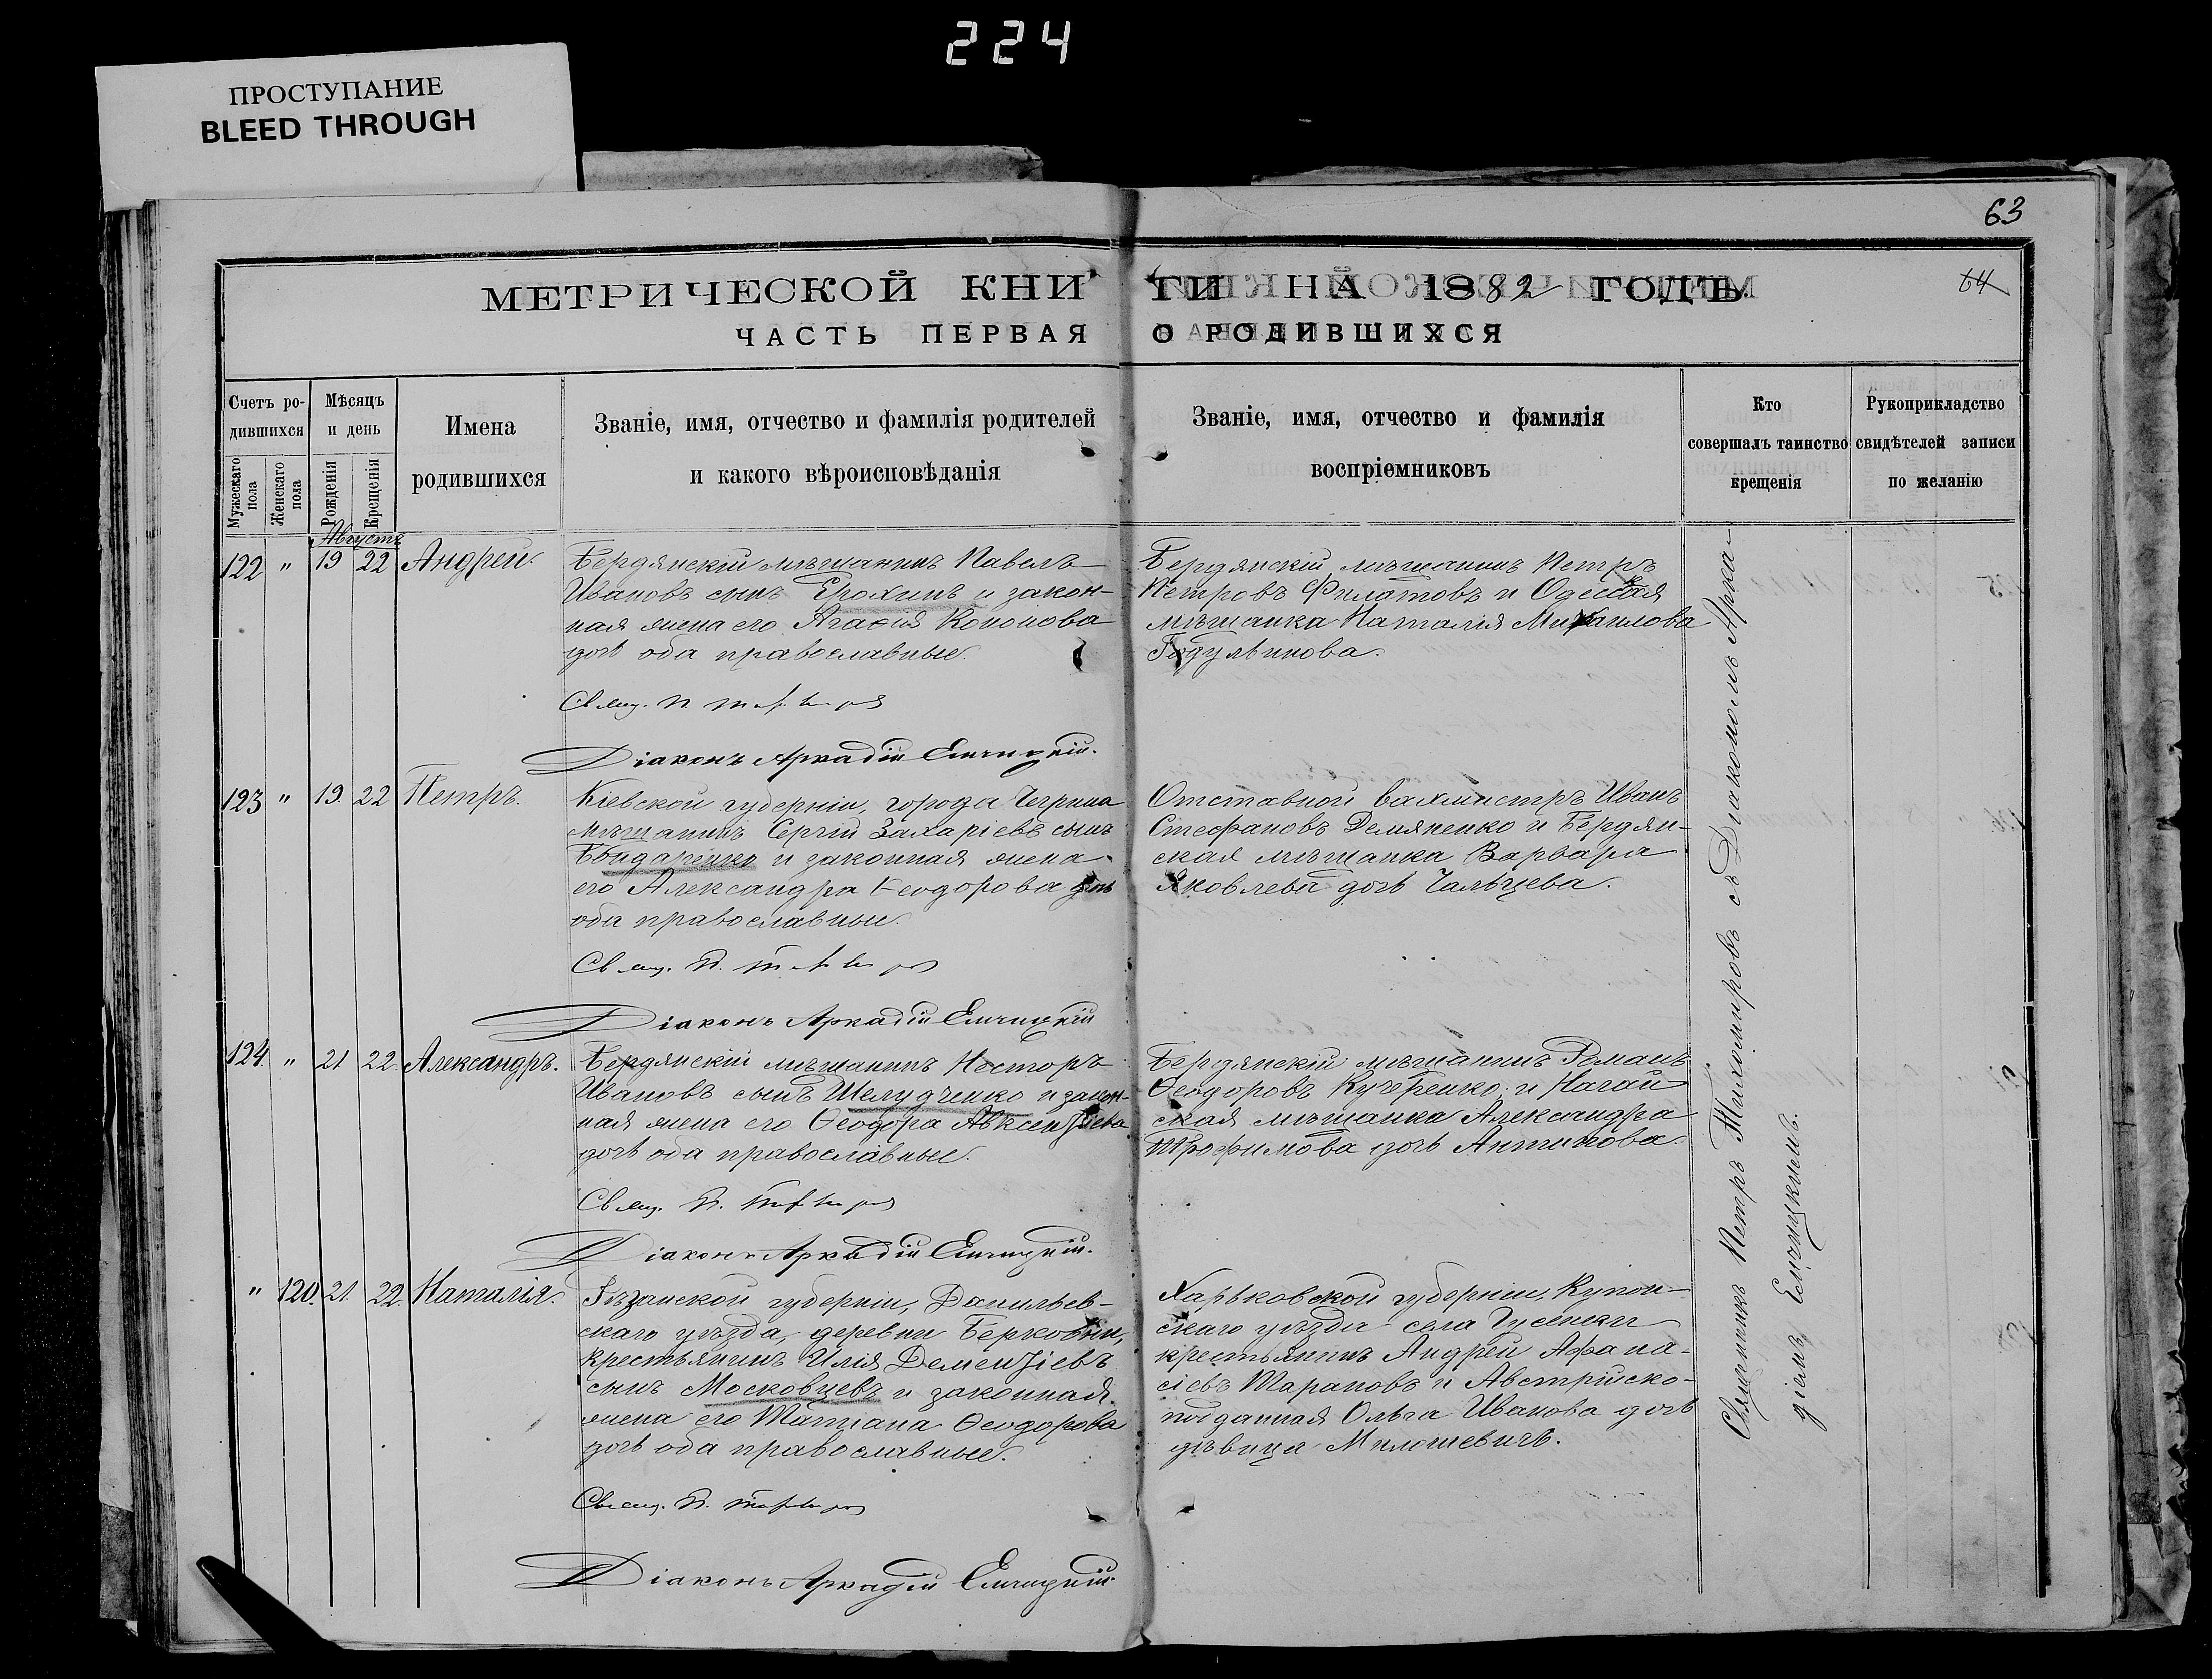 224
ПРОСТУПАНИЕ
BLEED THROUGH
63
64
МЕТРИЧЕСКОЙ КНИГИ НА 1882 ГОДЪ
ЧАСТЬ ПЕРВАЯ О РОДИВШИХСЯ
Счетъ родившихся
Мужескаго пола
Женскаго пола
Мѣсяцъ и день
Рожденія
Крещенія
Имена родившихся
Званіе, имя, отчество и фамилія родителей
и какого вѣроисповѣданія
Званіе, имя, отчество и фамилія
воспріемниковъ
Кто
совершалъ таинство
крещенія
Рукоприкладство
свидѣтелей записи
по желанію
Августъ
122 " 19 22 Андрей.
Бердянскій мѣщанинъ Павелъ
Ивановъ сынъ Ерохинъ и закон-
ная жена его Агафія Кононова
дочь оба православные.
Діаконъ Аркадій
Бердянскій мѣщанинъ Петръ
Петровъ Филатовъ и Одесская
мѣщанка Наталія Михаилова
123 " 19. 22 Петръ.
Кіевской губерніи, города Чегрина
мѣщанинъ Сергій Захаріевъ сынъ
Бондаренко и законная жена
его Александра Ѳеодорова дочь
оба православные.
Діаконъ Аркадій
Отставной вахмистръ Иванъ
Стефановъ Демяненко и Бердян-
ская мѣщанка Варвара
Яковлева дочь Чальцева.
124. " 21 22. Александръ.
Бердянскій мѣщанинъ Несторъ
Ивановъ сынъ Шелудченко и закон-
ная жена его Ѳеодора Авксентіева
дочь оба православные.
Діаконъ Аркадій
Бердянскій мѣщанинъ Романъ
Ѳеодоровъ и Нагай
ская мѣщанка Александра
Трофимова дочь Антипова.
" 120. 21. 22. Наталія.
губерніи, Данильев-
скаго уѣзда, деревни
крестьянинъ Илія Дементіевъ
сынъ Московцевъ и законная
жена его Татіана Ѳеодорова
дочь оба православные.
Діаконъ Аркадій
Харьковской губерніи, Купян-
скаго уѣзда села Гусенки
крестьянинъ Андрей Афана-
сіевъ Тарановъ и Австрійско-
подданная Ольга Иванова дочь
дѣвица Милошевичъ.
Священникъ Петръ Тихомировъ съ Діакономъ Арка-
діемъ